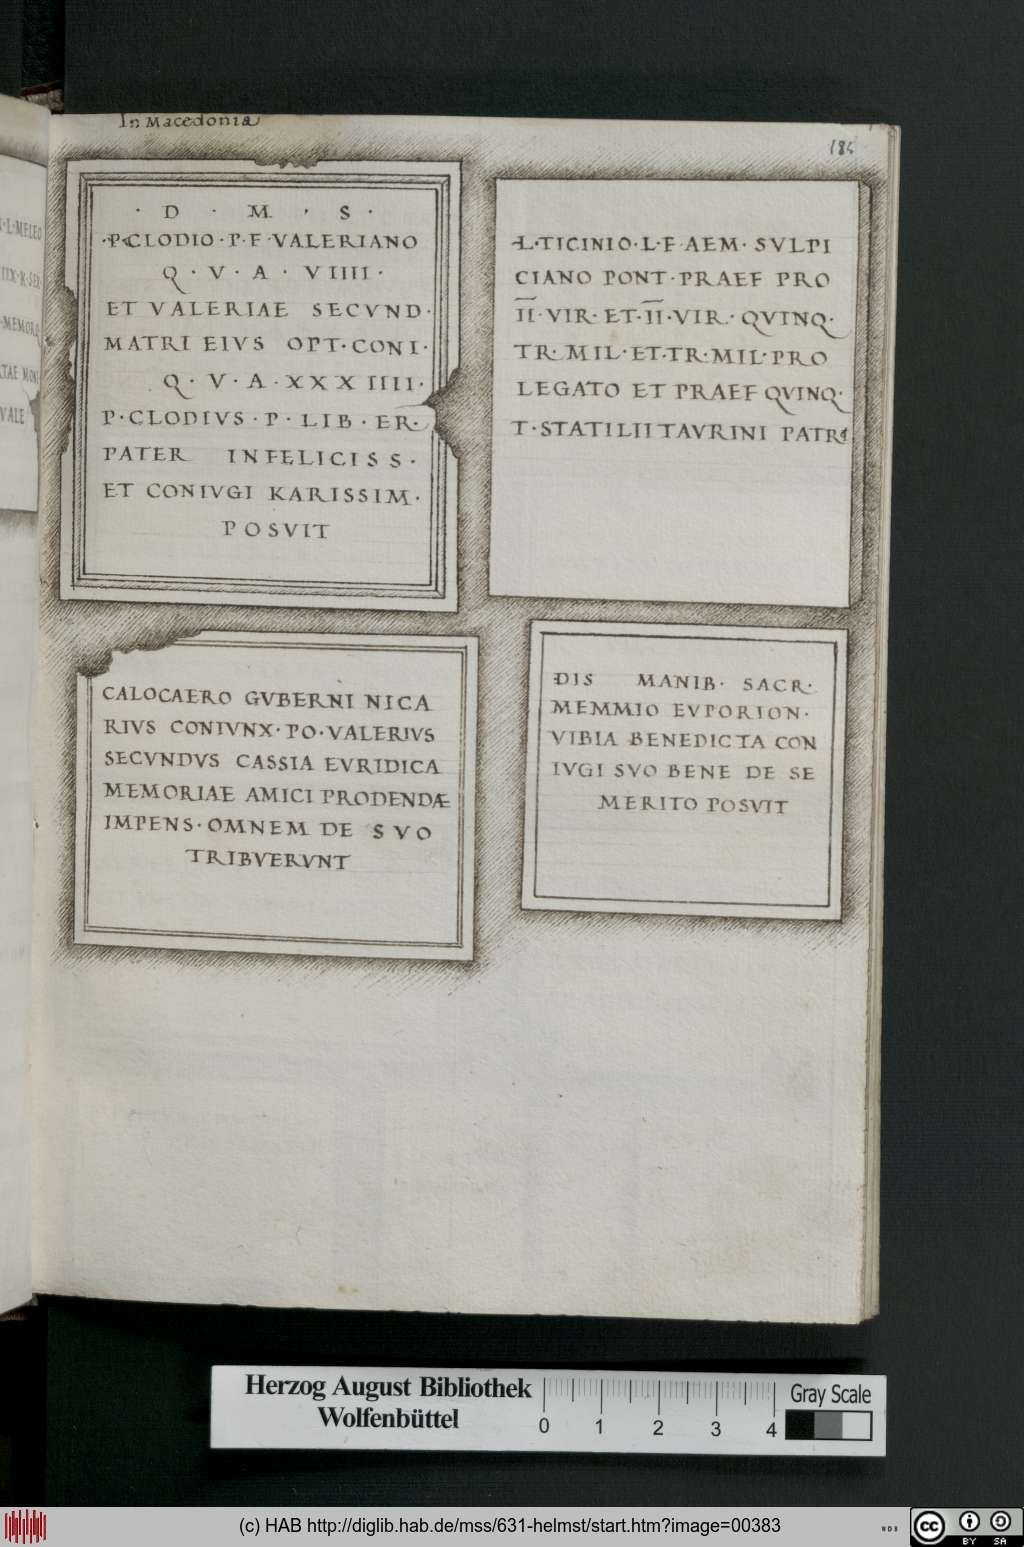 In Macedonia
184
· D · M · S ·
·P·CLODIO·P·F·VALERIANO
Q · V · A · VIIII ·
ET VALERIAE SECVND·
MATRI EIVS OPT·CONI·
Q · V · A · XXXIIII·
P·CLODIVS·P·LIB·ER·
PATER INFELICISS·
ET CONIVGI KARISSIM·
POSVIT
L·TICINIO·L·F·AEM·SVLPI
CIANO PONT·PRAEF PRO
II·VIR·ET·II·VIR·QVINQ·
TR·MIL·ET·TR·MIL·PRO
LEGATO ET PRAEF QVINQ·
T·STATILII TAVRINI PATRI
CALOCAERO GVBERNI NICA
RIVS CONIVNX·PO·VALERIVS
SECVNDVS CASSIA EVRIDICA
MEMORIAE AMICI PRODENDÆ
IMPENS·OMNEM DE SVO
TRIBVERVNT
DIS MANIB· SACR·
MEMMIO EVPORION·
VIBIA BENEDICTA CON
IVGI SVO BENE DE SE
MERITO POSVIT
Herzog August Bibliothek
Wolfenbüttel
0 1 2 3 4
Gray Scale
(c) HAB http://diglib.hab.de/mss/631-helmst/start.htm?image=00383
WDB
cc BY SA